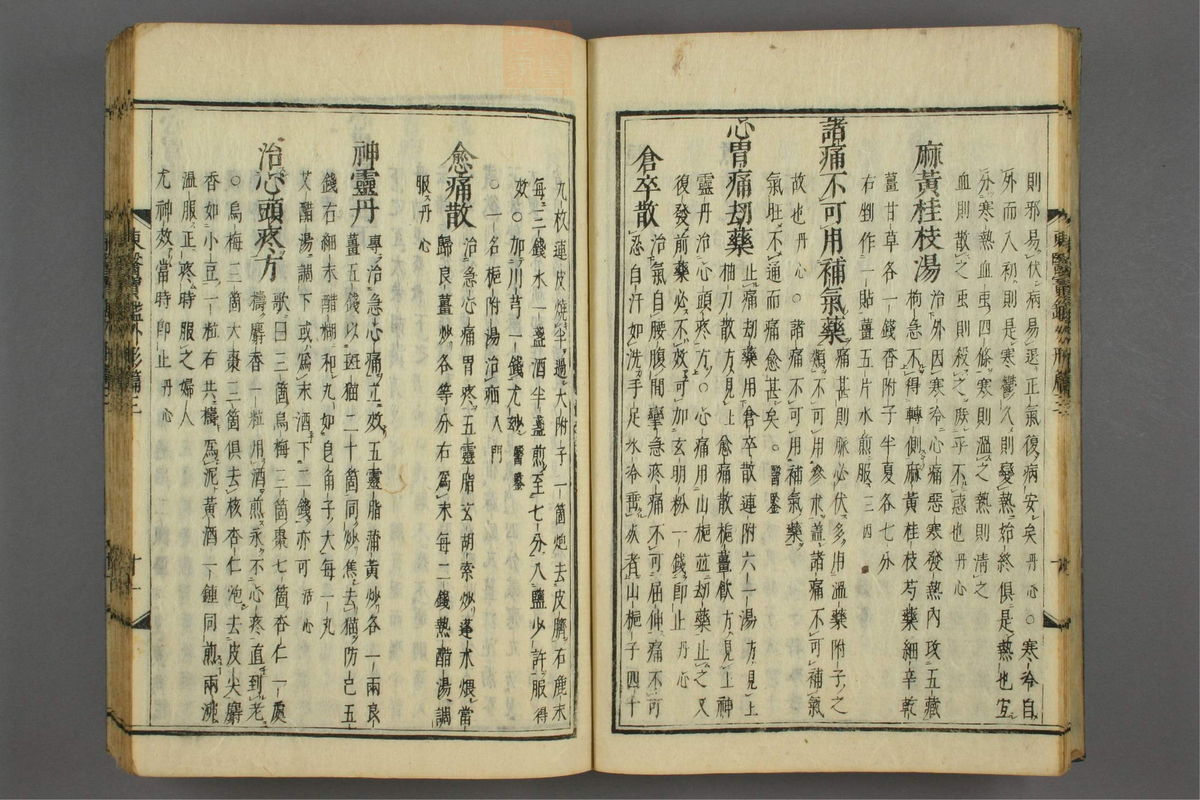 則邪易伏病易退正氣復病安矣丹心○寒冷自
外而入初則是寒鬱久則變熱始終俱是熱也宜
分寒熱血虫四條寒則溫之熱則清之
血則散之虫則殺之庶乎不惑也丹心
麻黃桂枝湯治外因寒冷心痛惡寒發熱內攻五藏
拘急不得轉側麻黃桂枝芍藥細辛乾
薑甘草各一錢香附子半夏各七分
右剉作一貼薑五片水煎服三四
諸痛不可用補氣藥痛甚則脈必伏多用溫藥附子之
類不可用參朮蓋諸痛不可補氣
故也丹心○諸痛不可用補氣藥
氣旺不通而痛愈甚矣○醫鑒
心胃痛劫藥止痛劫藥用倉卒散連附六一湯方見上
柚刀散方見上愈痛散梔薑飮方見上神
靈丹治心頭疼方○心痛用山梔並劫藥止之又
復發前藥必不效可加玄明粉一錢卽止丹心
倉卒散治氣自腰腹間攣急疼痛不可屈伸痛不可
忍自汗如洗手足氷冷垂死者山梔子四十
九枚連皮燒半過大附子一箇炮去皮臍右麁末
每三錢水一盞酒半盞煎至七分入鹽少許服得
效○加川芎一錢尤妙醫鑒
○一名梔附湯治疝入門
愈痛散治急心痛胃疼五靈脂玄胡索炒蓬朮煨當
歸良薑炒各等分右爲末每二錢熱醋湯調
服丹心
神靈丹專治急心痛立效五靈脂蒲黃炒各一兩良
薑五錢以斑猫二十箇同炒焦去猫防己五
錢右細末醋糊和丸如皂角子大每一丸
艾醋湯調下或爲末酒下二錢亦可活心
治心頭疼方歌曰三箇烏梅三箇棗七箇杏仁一處
擣麝香一粒用酒煎永不心疼直到老
○烏梅三箇大棗三箇俱去核杏仁泡去皮尖麝
香如小豆一粒右共擣爲泥黃酒一鍾同煎兩沸
溫服正疼時服之婦人
尤神效當時卽止丹心
東醫寶鑑外形篇三
十一